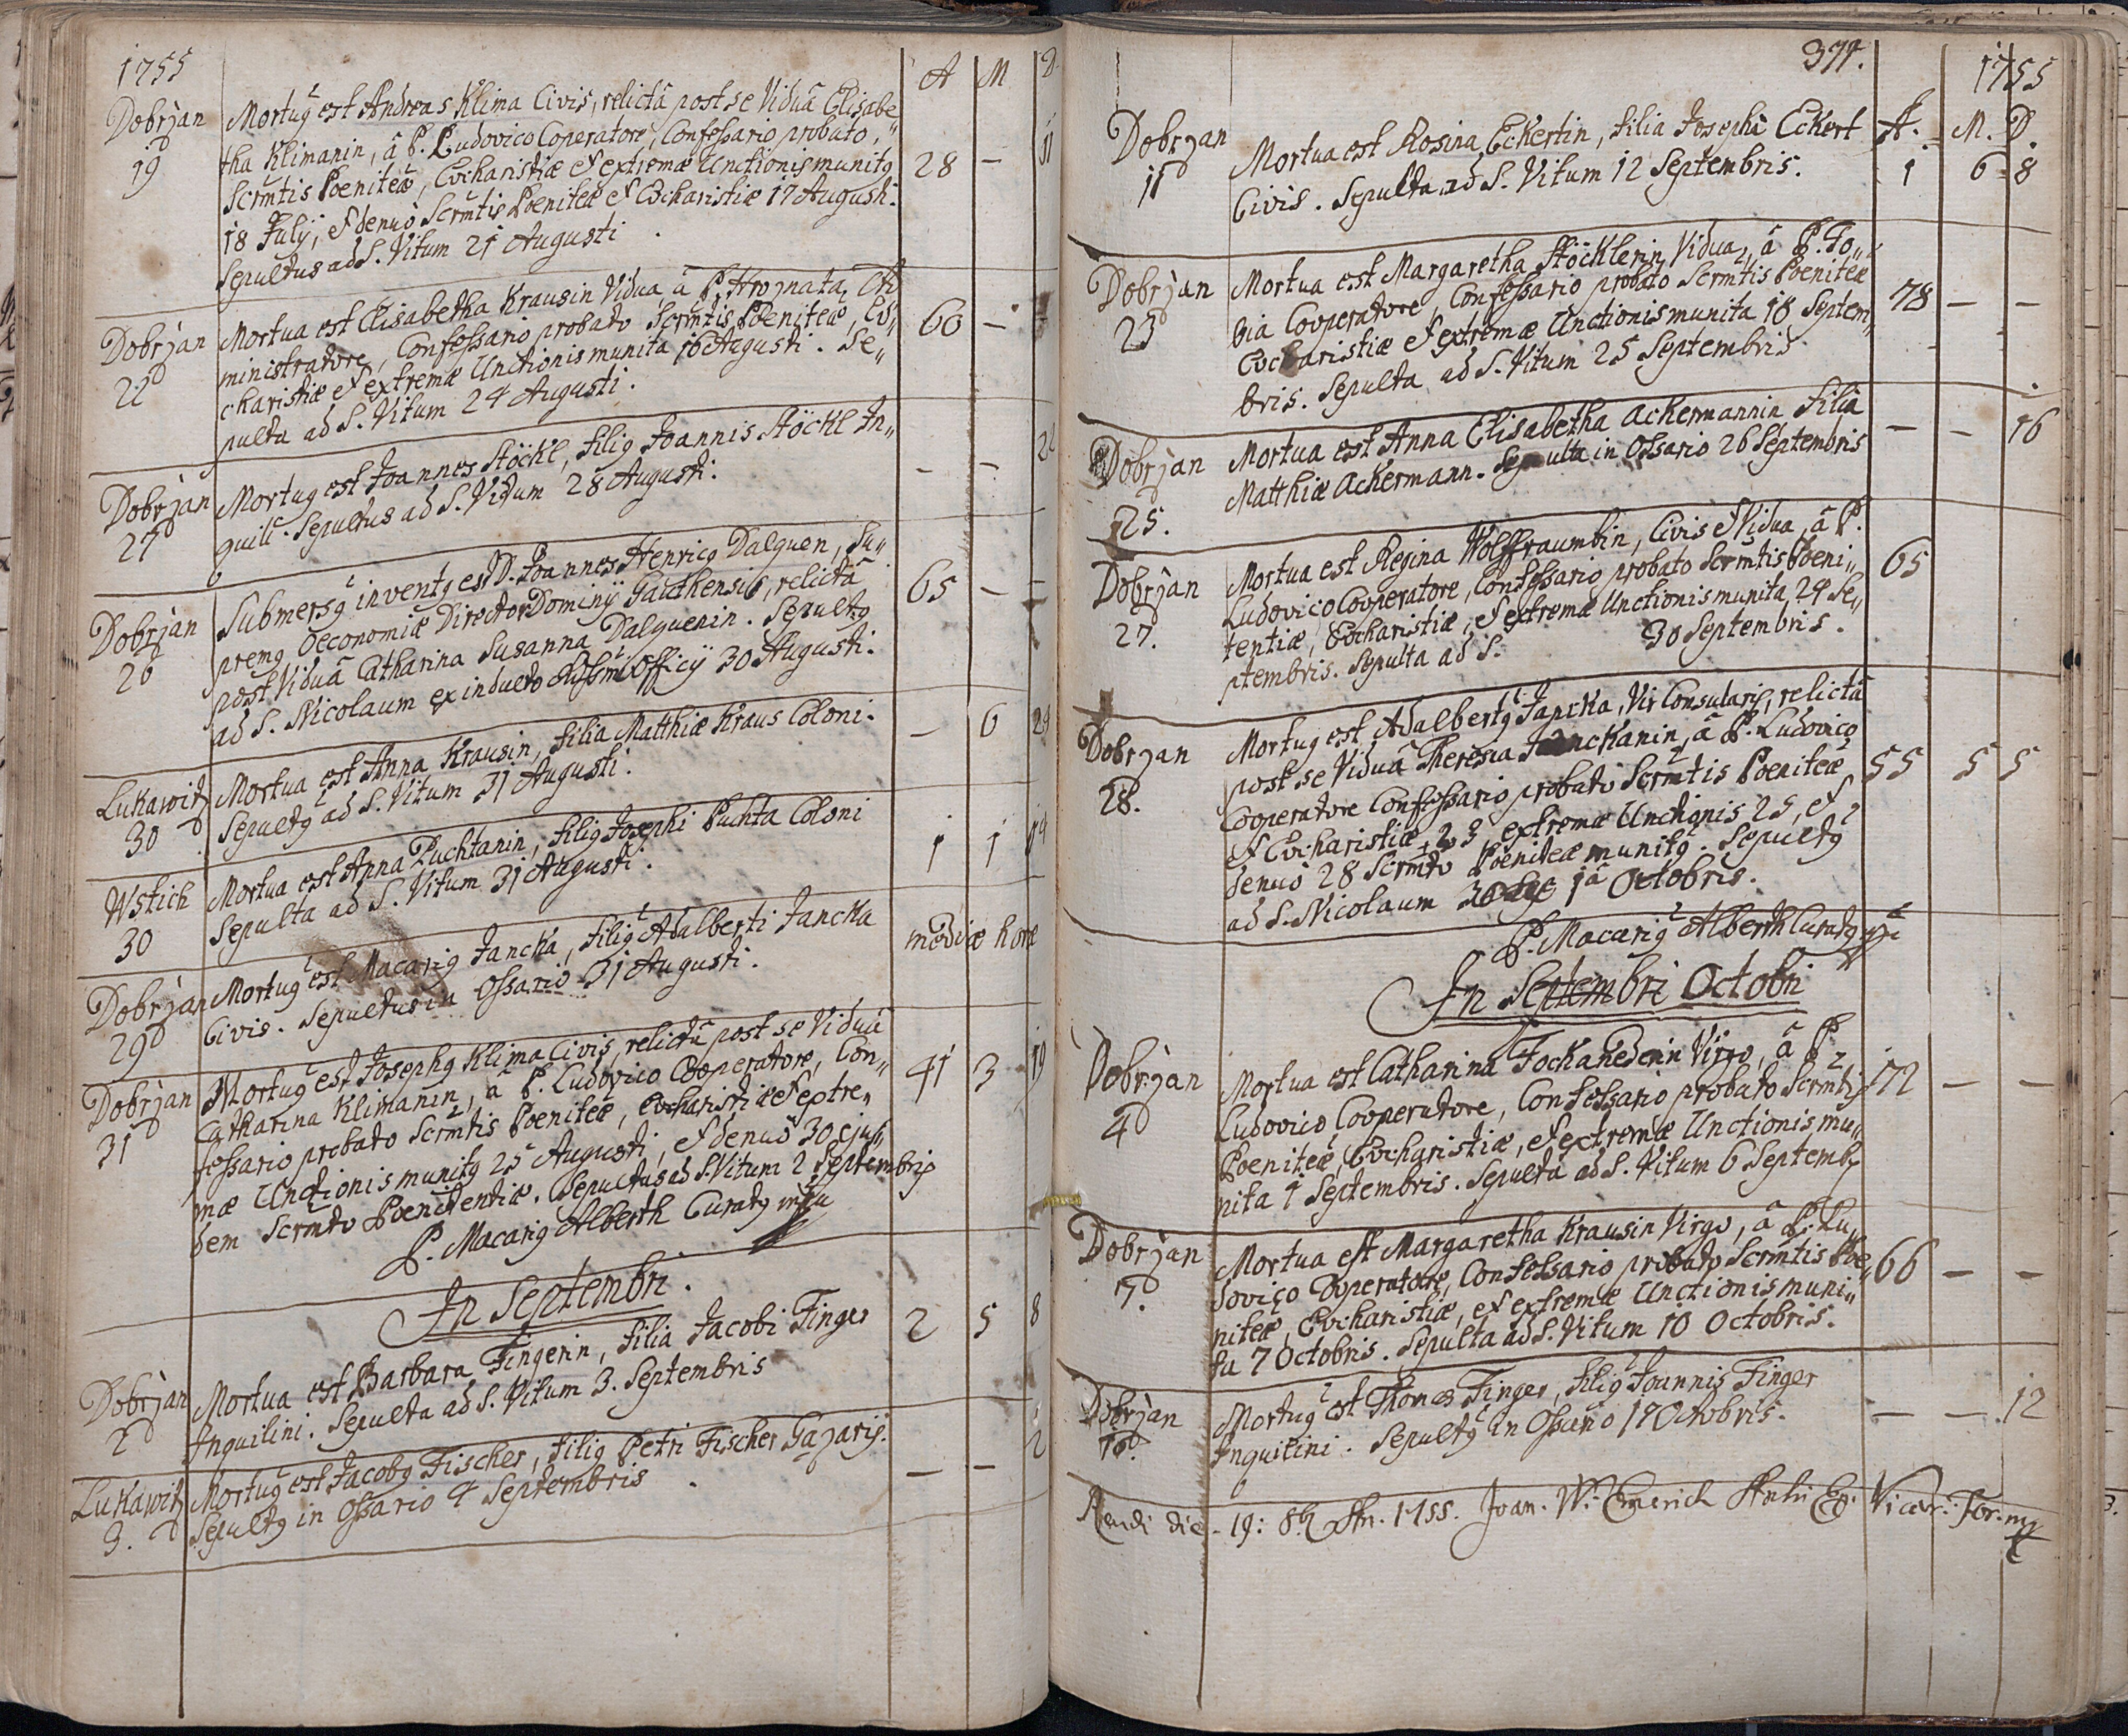 1755
A M D
Dobrzan
19
Mortuꝰ est Andreas Klima Civis, relictâ post se Viduâ Elisabe„
tha Klimanin, â P. Ludovico Coperatore, Confessario probato,
Scrm̃tis Poeniteæ, Eucharistiæ et extremæ Unctionis munitꝰ
18 July, et denuò Scrm̃tis Poeniteæ et Eucharistiæ 17 Augusti.
Sepultus ad S. Vitum 21 Augusti.
28 — 11
Dobrzan
22
Mortua est Elisabetha Krausin Vidua â P. Hroznata Ad
ministratore, Confessario probato Scrm̃tis Poeniteæ, Eu„
charistiæ et extremæ Unctionis munita 16 Augusti. Se„
pulta ad S. Vitum 24 Augusti.
60 —
Dobrzan
27
Mortuꝰ est Joannes Stöckl, filiꝰ Joannis Stöckl In„
quili. Sepultus ad S. Vitum 28 Augusti.
— — 22
Dobrzan
26
Submersꝰ inventꝰ est D. Joannes Henricꝰ Dalquen, Su„
premꝰ Oeconomiæ Director Dominij Gaicthensis, relictâ
post Viduâ Catharina Susanna Dalquenin. Sepultꝰ
ad S. Nicolaum ex indulto Rssmi Officij 30 Augusti.
65 — —
Lukawitz
30
Mortua est Anna Krausin, filia Matthiæ Kraus Coloni.
Sepultꝰ ad S. Vitum 31 Augusti.
— 6 24
Wstich
30
Mortua est Anna Puchtanin, filiꝰ Josephi Puchta Coloni
Sepulta ad S. Vitum 31 Augusti.
1 1 14
Dobrzan
29
Mortuꝰ est Macariꝰ Jancka, filiꝰ Adalberti Jancka
Civis. Sepultus in Ossario 31 Augusti.
mediæ horæ
Dobrzan
31
Mortuꝰ est Josephꝰ Klima Civis, relictâ post se Viduâ
Catharina Klimanin, â P. Ludovico Cooperatore, Con„
fessario probato Scrm̃tis Poeniteæ, Eucharistiæ et extre„
mæ Unctionis munitꝰ 25 Augusti, et denuò 30 ejus„
dem Scrm̃to Poenitentiæ. Sepultus ad S. Vitum 2 Septembris
41 3 19
P. Macariꝰ Alberth Curatꝰ mpu
In Septembri.
Dobrzan
2
Mortua est Barbara Fingerin, filia Jacobi Finger
Inquilini. Sepulta ad S. Vitum 3. Septembris
2 5 8
Lukawitz
3.
Mortuꝰ est Jacobꝰ Fischer, filiꝰ Petri Fischer Gazarij.
Sepultꝰ in Ossario 4 Septembris.
— — 2
374.
1755
A. M. D.
Dobrzan
11
Mortua est Rosina Eckertin, filia Josephi Eckert
Civis. Sepulta ad S. Vitum 12 Septembris.
1 6 8
Dobrzan
23
Mortua est Margaretha Stöcklerin Vidua, â P. To„
bia Cooperatore, Confessario probato Scrm̃tis Poeniteæ
Eucharistiæ et extremæ Unctionis munita 18 Septem„
bris. Sepulta ad S. Vitum 25 Septembris
78 — —
Dobrzan
25.
Mortua est Anna Elisabetha Ackermannin filia
Matthiæ Ackermann. Sepulta in Ossario 26 Septembris
— — 16
Dobrzan
27.
Mortua est Regina Wolffraumbin, Civis et Vidua, â P.
Ludovico Cooperatore, Confessario probato Scrm̃tis Poeni„
tentiæ, Eucharistiæ, et extremæ Unctionis munita 24 Se„
ptembris. Sepulta ad S. 30 Septembris.
65
Dobrzan
28.
Mortuꝰ est Adalbertꝰ Jancka, Vir Consularis, relictâ
post se Viduâ Theresia Janckanin, â P. Ludovico
Cooperatore Confessario probato Scrm̃tis Poeniteæ
et Eucharistiæ, 23, extremæ Unctionis 25, et
denuò 28 Scrm̃to Poeniteæ munitꝰ. Sepultꝰ
ad S. Nicolaum 30 1â Octobris.
55 5 5
P. Macariꝰ Alberth Curatꝰ mpu
In Septembri Octobri
Dobrzan
4
Mortua est Catharina Fockanederin Virgo, â P.
Ludovico Cooperatore, Confessario probato Scrm̃tis
Poeniteæ, Eucharistiæ, et extremæ Unctionis mu„
nita 4 Septembris. Sepulta ad S. Vitum 6 Septemb
72 — —
Dobrzan
7.
Mortua est Margaretha Krausin Virgo, â P. Lu„
dovico Cooperatore, Confessario probato Scrm̃tis Poe„
niteæ, Eucharistiæ, et extremæ Unctionis muni„
ta 7 Octobris. Sepulta ad S. Vitum 10 Octobris.
66 — —
Dobrzan
16.
Mortuꝰ est Thomas Finger, filiꝰ Joannis Finger
Inquilini. Sepultꝰ in Ossario 17 Octobris.
— — 12
die 19: 8b 1755. Joan. W. Emerich Vicar. For. mp